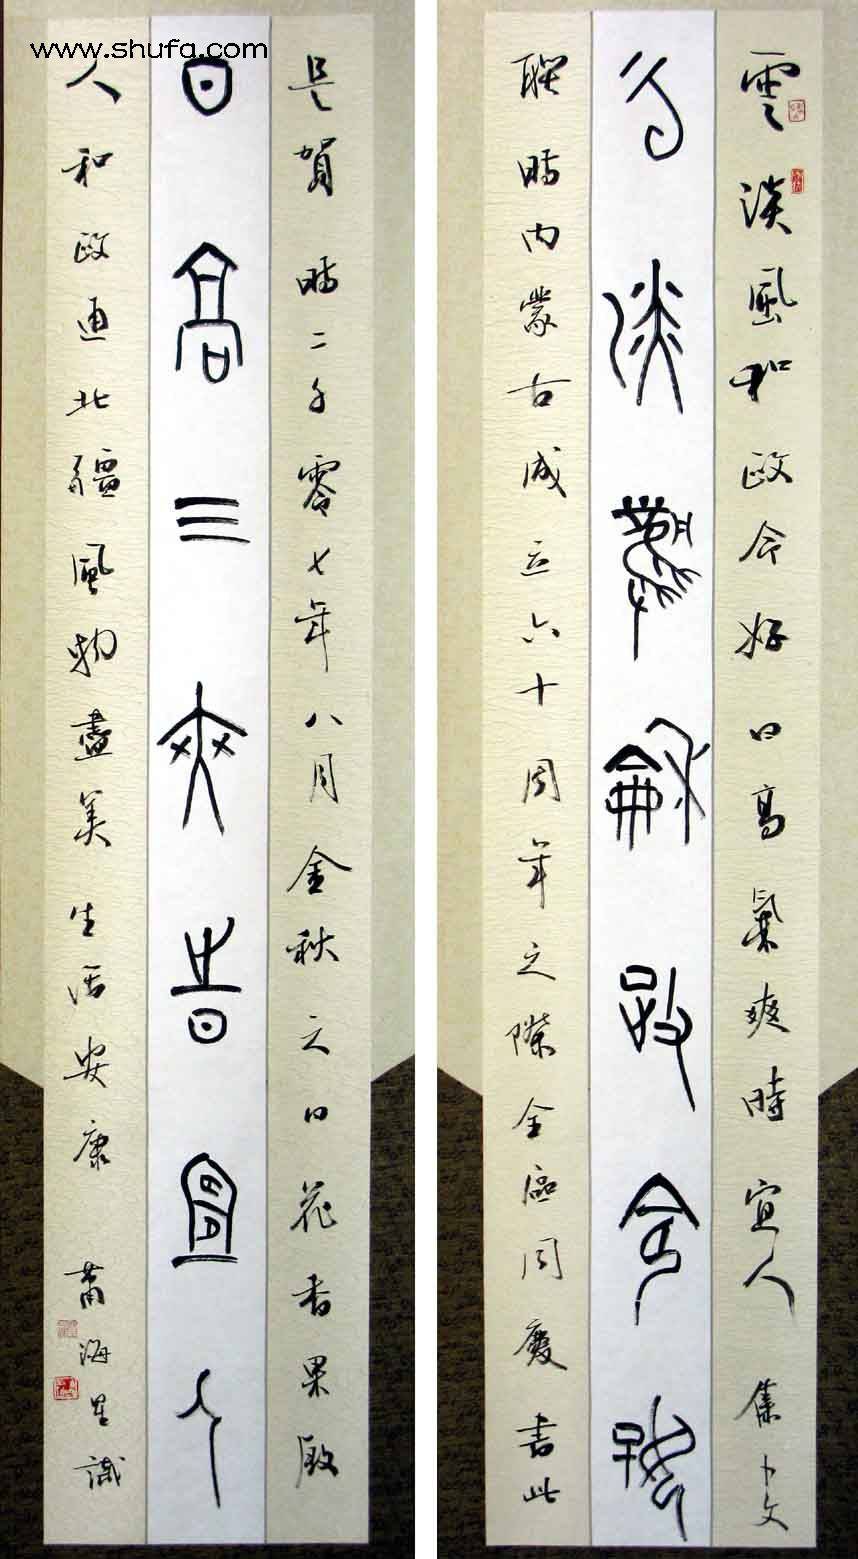 雲淡風和政令好日高氣爽時宜人集卜文
云淡風龢政令好
聯時内蒙古成立六十周年之際全區同慶書此
是賀時二千零七年八月金秋之日花香果殷
日高气爽時宜人
人和政通北疆風物盡美生活安康 海星識
www.shufa.com